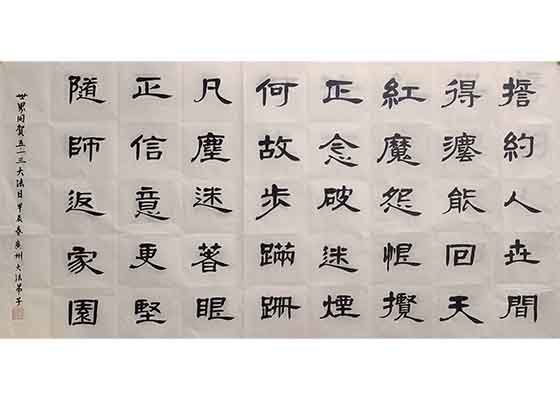 誓約人世間
得灋能回天
紅魔怨恨攪
正念破迷煙
何故步蹣跚
凡塵迷著眼
正信意更堅
隨師返家園
世界同賀五一三大法日甲辰春廣州大法弟子